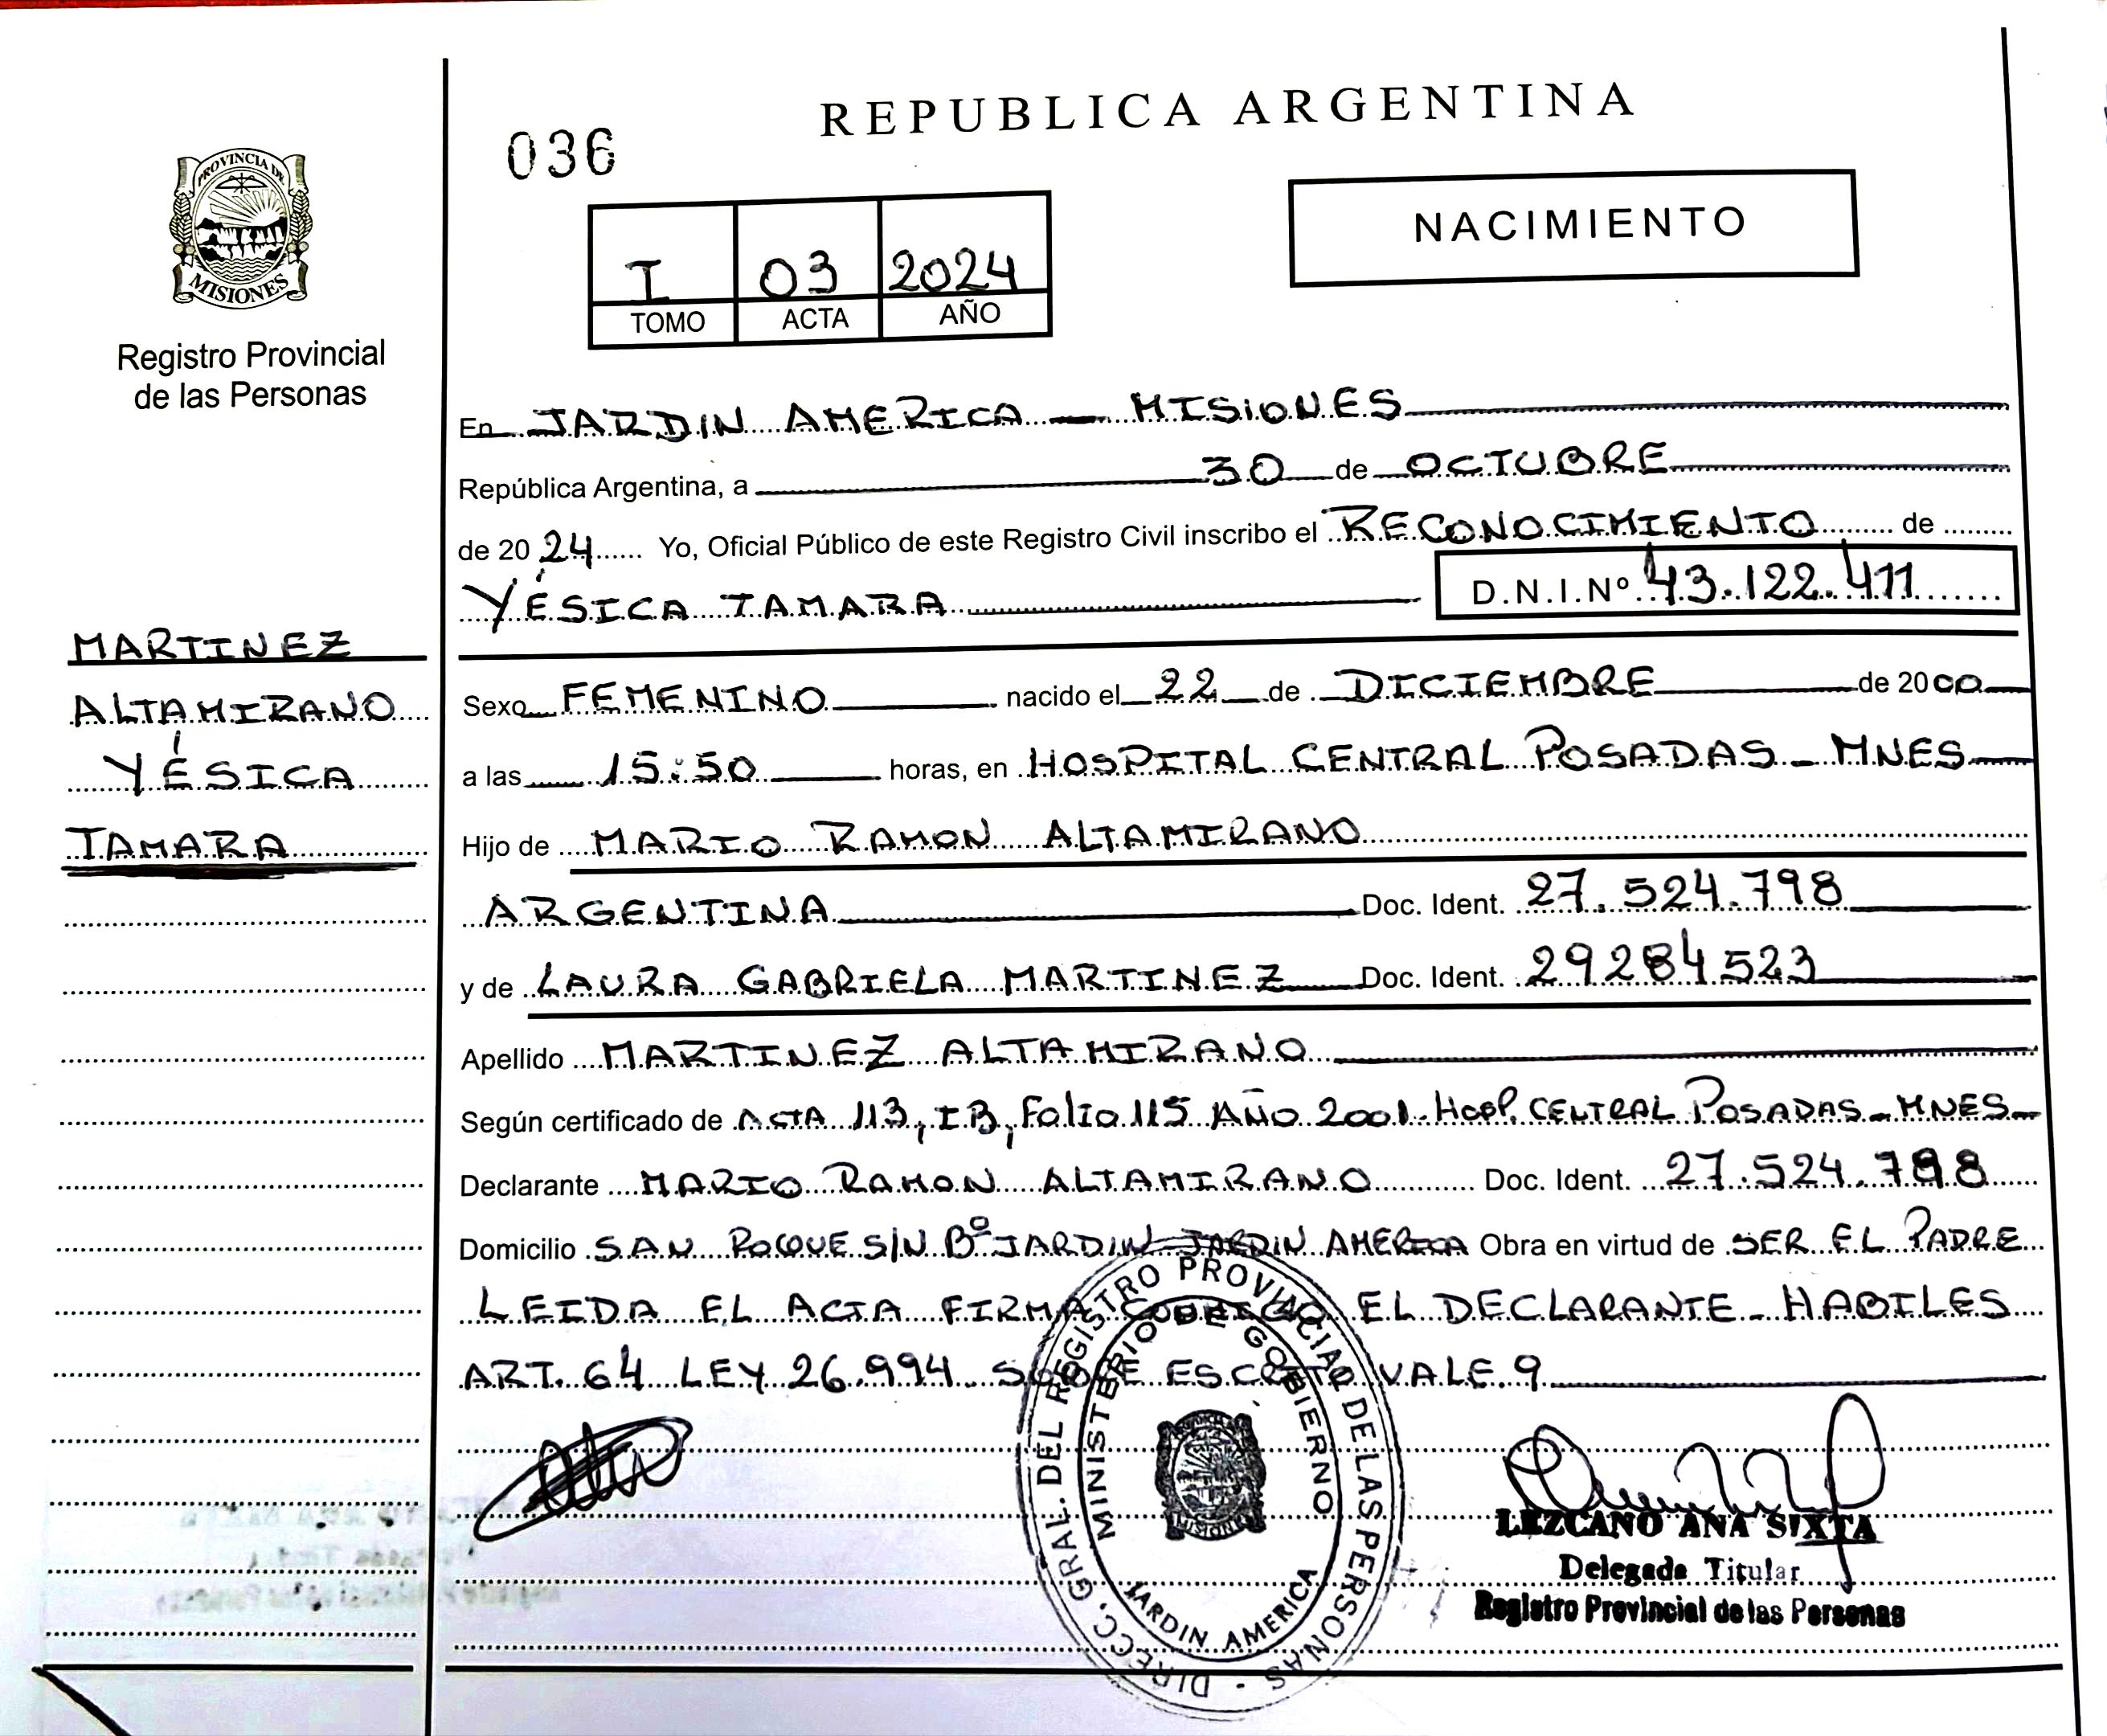 REPUBLICA ARGENTINA
036
NACIMIENTO
I 03 2024
TOMO ACTA AÑO
PROVINCIA DE
MISIONES
Registro Provincial
de las Personas
MARTINEZ
ALTAMIRANO
YÉSICA
TAMARA
En JARDIN AMERICA - MISIONES
República Argentina, a 30 de OCTUBRE
de 2024 Yo, Oficial Público de este Registro Civil inscribo el RECONOCIMIENTO de
YÉSICA TAMARA D.N.I.Nº 43.122.411
Sexo FEMENINO nacido el 22 de DICIEMBRE de 2000
a las 15:50 horas, en HOSPITAL CENTRAL POSADAS - MNES
Hijo de MARIO RAMON ALTAMIRANO
ARGENTINA Doc. Ident. 27.524.798
y de LAURA GABRIELA MARTINEZ Doc. Ident. 29284523
Apellido MARTINEZ ALTAMIRANO
Según certificado de ACTA 113, IB, Folio 115 AÑO 2001. Hosp. CENTRAL POSADAS - MNES
Declarante MARIO RAMON ALTAMIRANO Doc. Ident. 27.524.798
Domicilio SAN ROQUE S/N Bº JARDIN - JARDIN AMERICA Obra en virtud de SER EL PADRE
LEIDA EL ACTA FIRMA CONMIGO EL DECLARANTE - HABILES
ART. 64 LEY 26.994 SOBRE ESCRITO VALE 9
DIRECC. GRAL. DEL REGISTRO PROVINCIAL DE LAS PERSONAS
MINISTERIO DE GOBIERNO
JARDIN AMERICA
LEZCANO ANA SIXTA
Delegada Titular
Registro Provincial de las Personas